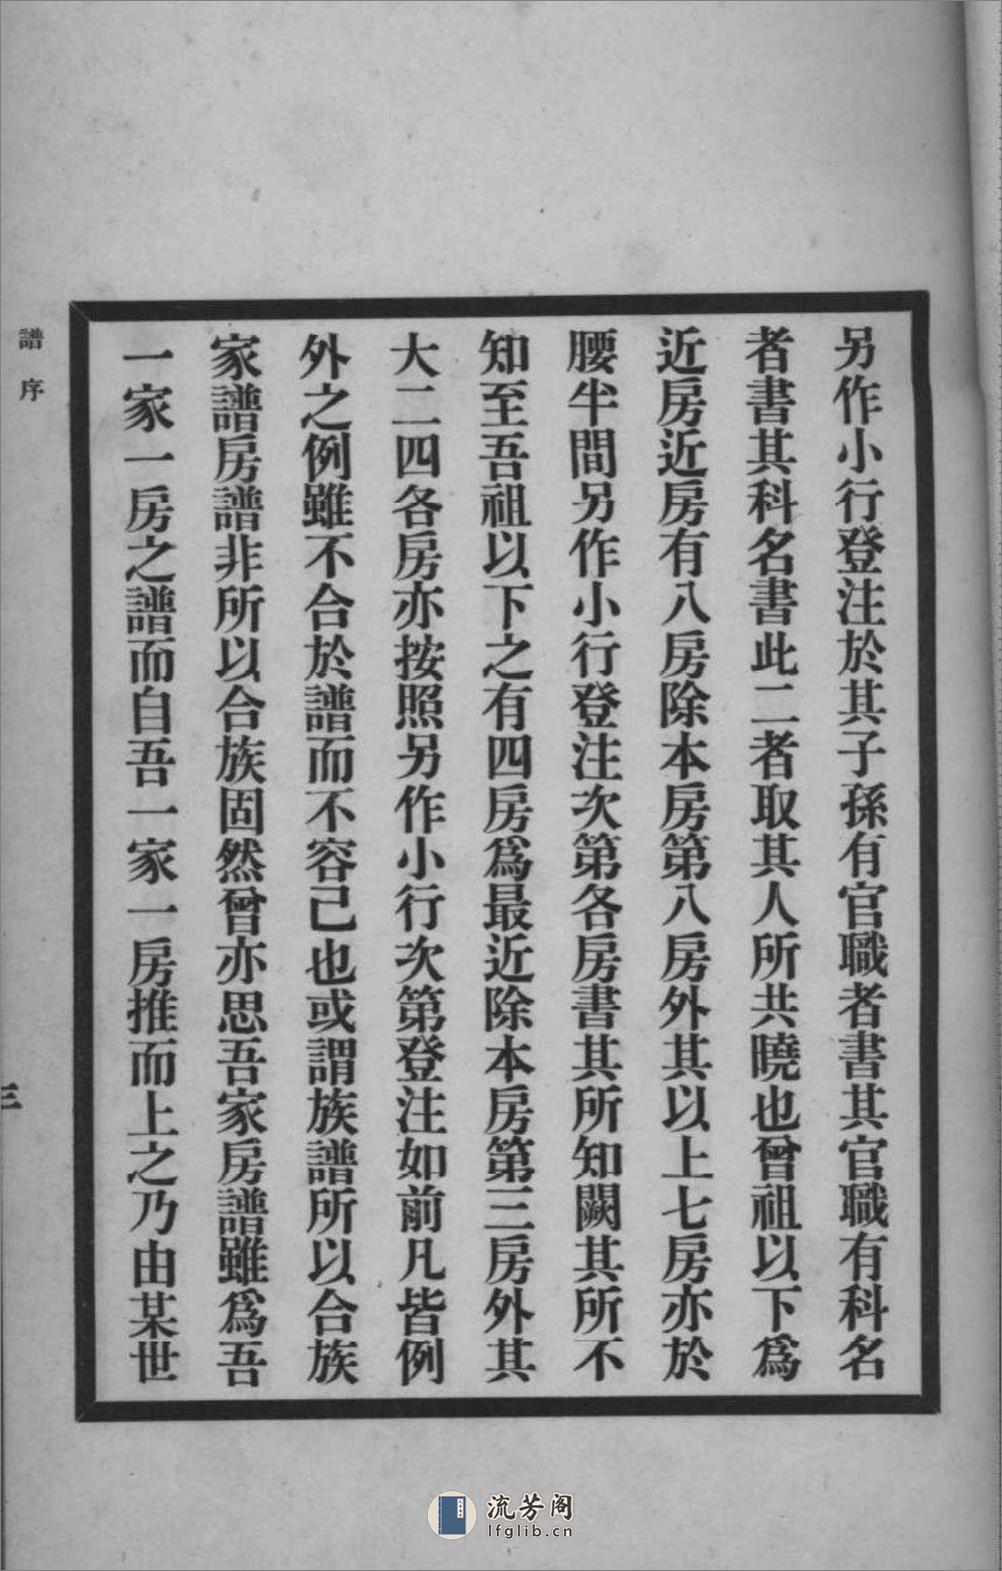 另作小行登注於其子孫有官職者書其官職有科名
者書其科名書此二者取其人所共曉也曾祖以下爲
近房近房有八房除本房第八房外其以上七房亦於
腰半間另作小行登注次第各房書其所知闕其所不
知至吾祖以下之有四房爲最近除本房第三房外其
大二四各房亦按照另作小行次第登注如前凡皆例
外之例雖不合於譜而不容己也或謂族譜所以合族
家譜房譜非所以合族固然曾亦思吾家房譜雖爲吾
一家一房之譜而自吾一家一房推而上之乃由某世
譜序
三
流芳阁
lfglib.cn